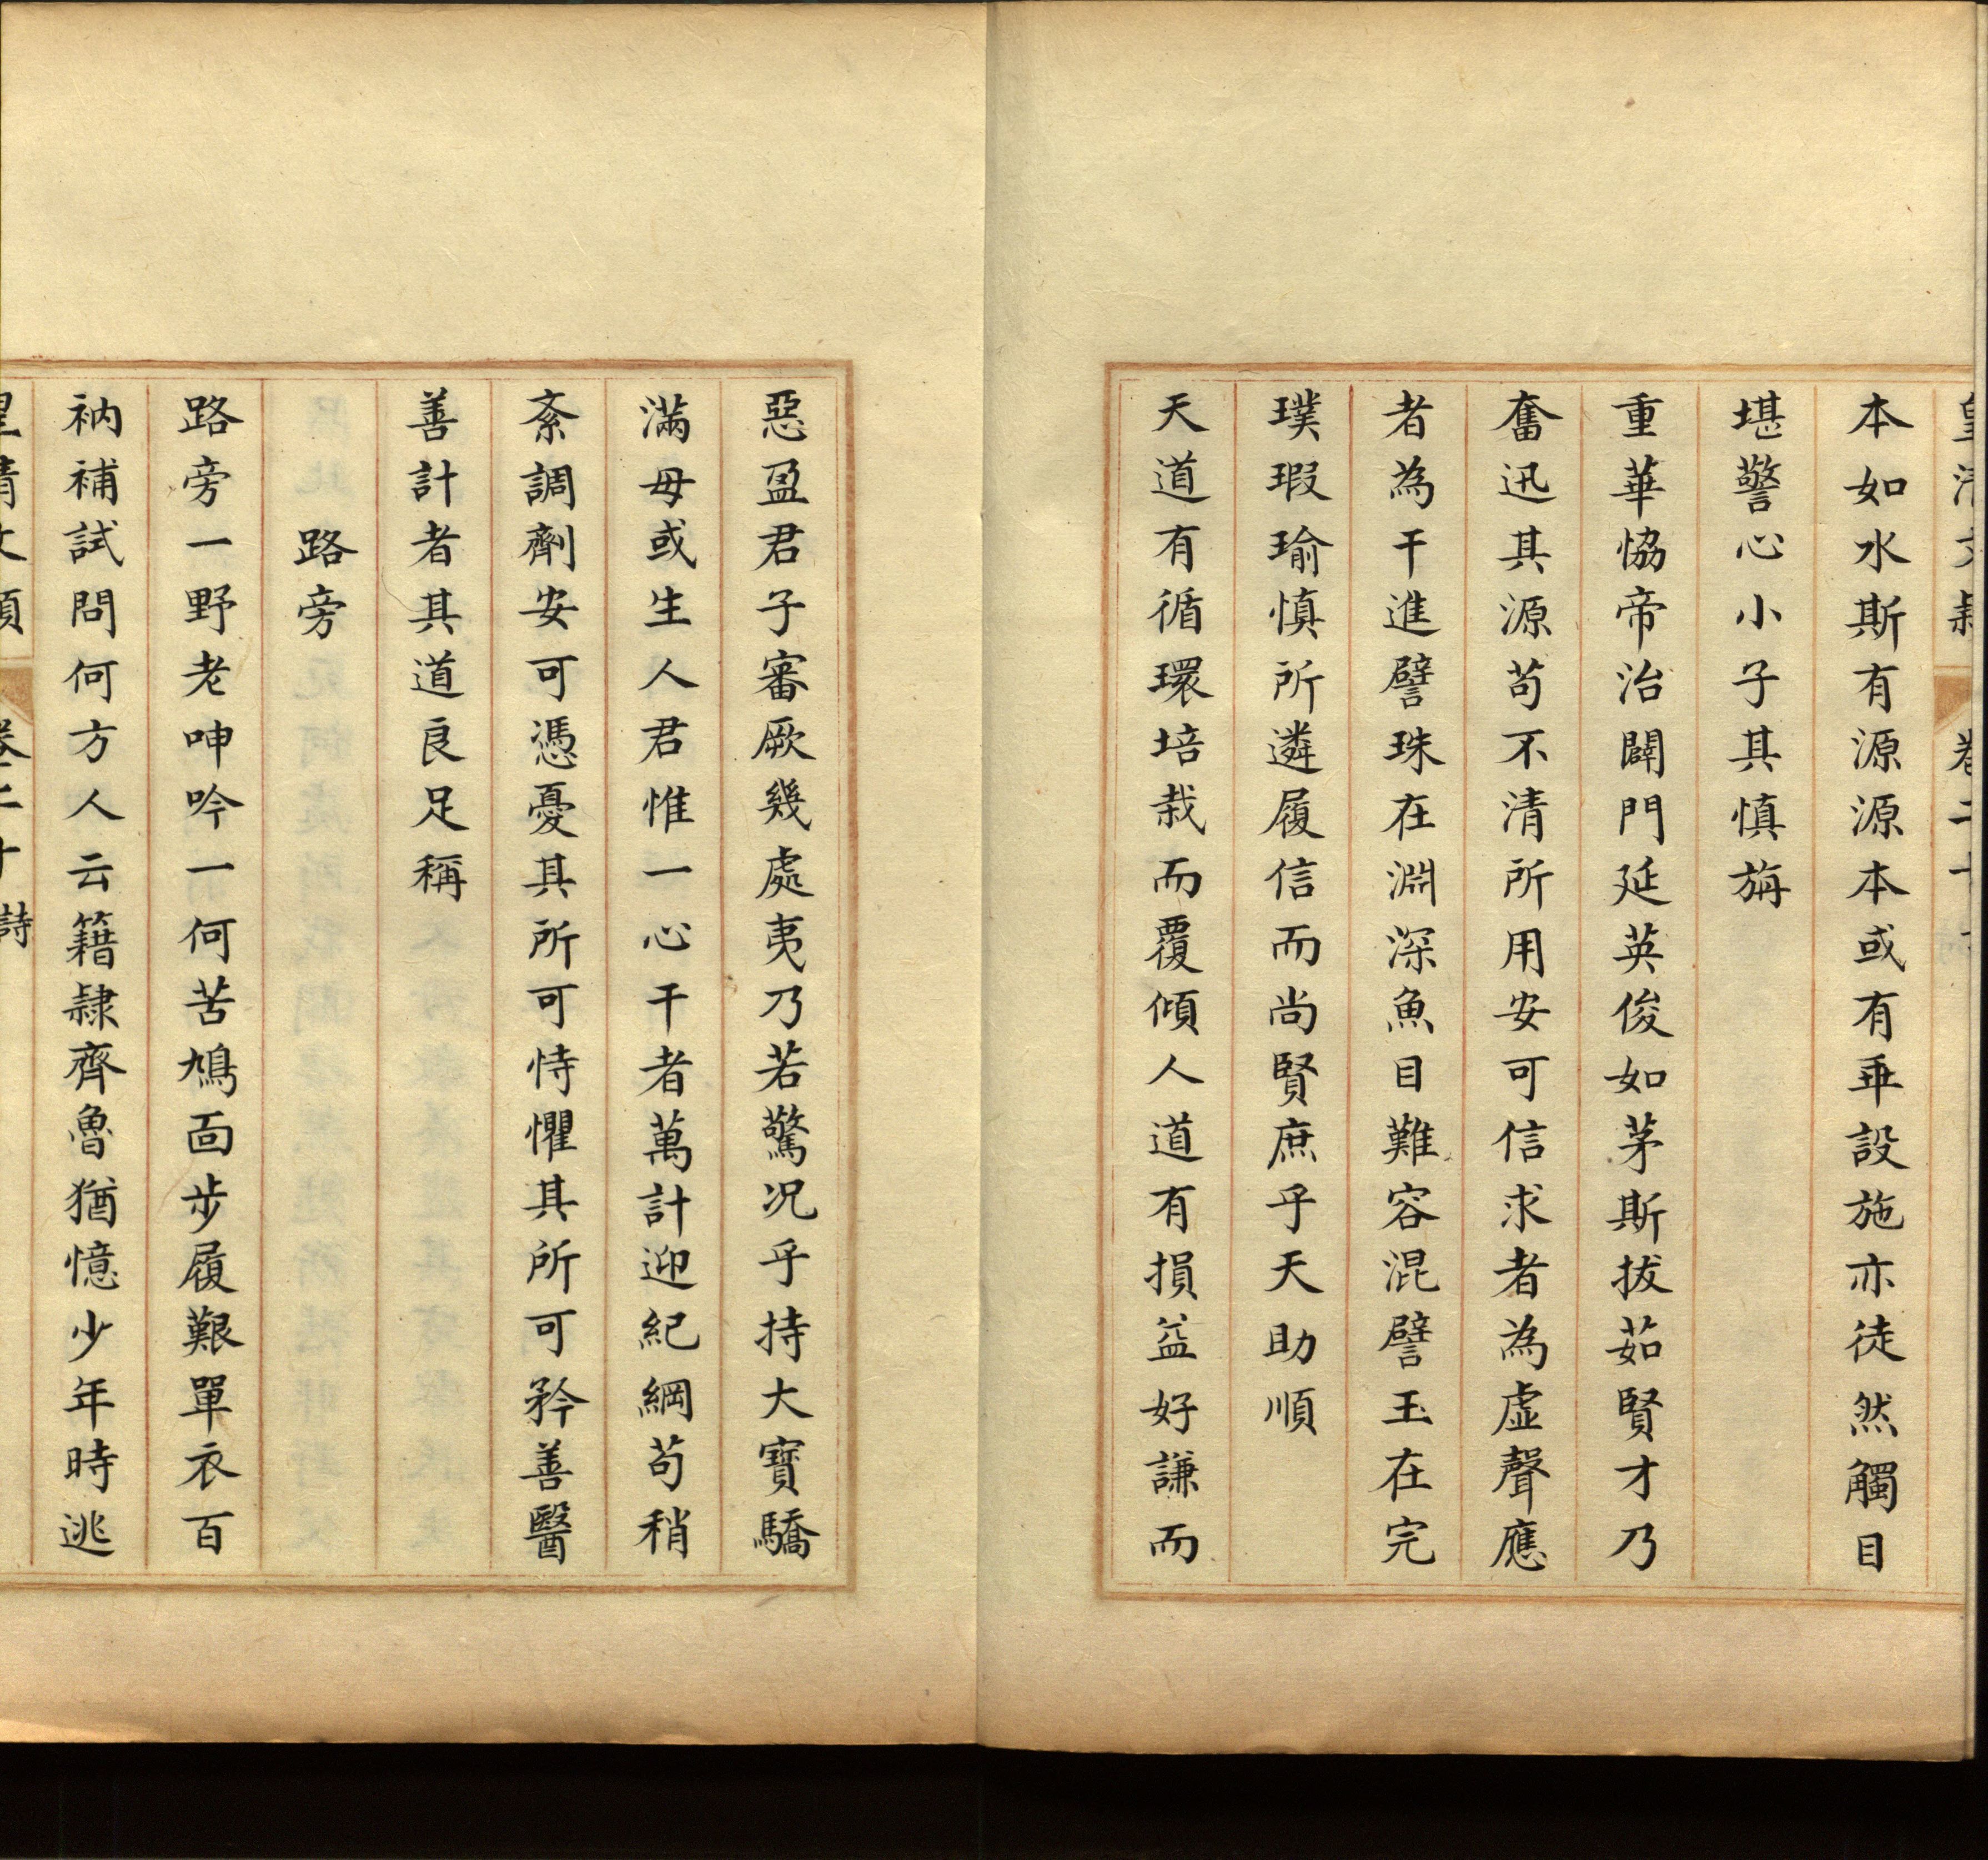 本如水斯有源源本或有乖設施亦徒然觸目
堪警心小子其慎旃
重華協帝治闢門延英俊如茅斯拔茹賢才乃
奮迅其源苟不清所用安可信求者為虛聲應
者為干進譬珠在淵深魚目難容混譬玉在完
璞瑕瑜慎所遴履信而尚賢庶乎天助順
天道有循環培栽而覆傾人道有損益好謙而
惡盈君子審厥幾處夷乃若驚況乎持大寶驕
滿毋或生人君惟一心干者萬計迎紀綱苟稍
紊調劑安可憑憂其所可恃懼其所可矜善醫
善計者其道良足稱
路旁
路旁一野老呻吟一何苦鳩面步履艱單衣百
衲補試問何方人云籍隸齊魯猶憶少年時逃
皇清文穎 卷二十 詩